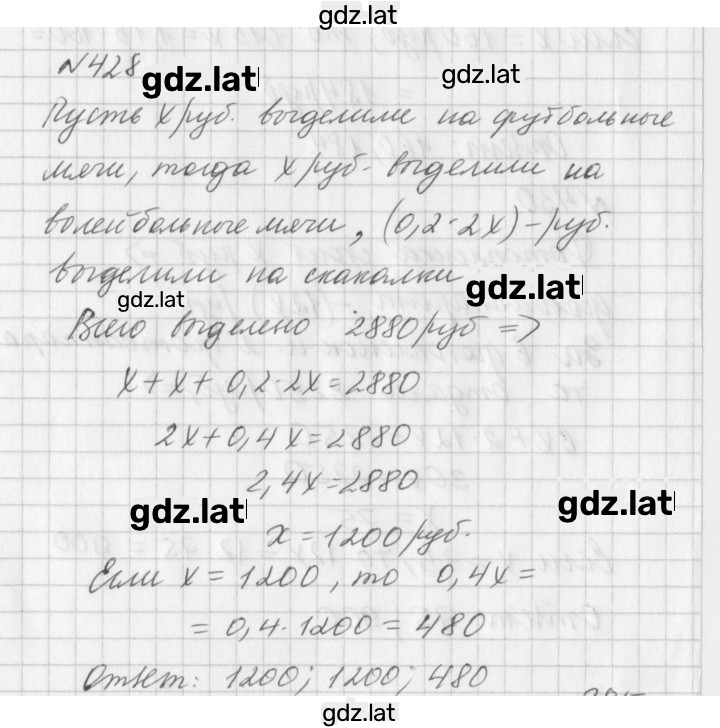 gdz.lat
№428
gdz.lat gdz.lat
Пусть х руб. выделили на футбольные
мячи, тогда х руб. выделили на
волейбольные мячи, (0,2·2х) - руб.
выделили на скакалки
gdz.lat
gdz.lat
Всего выделено 2880 руб =>
х + х + 0,2·2х = 2880
2х + 0,4х = 2880
2,4х = 2880
gdz.lat gdz.lat
х = 1200 руб.
Если х = 1200, то 0,4х =
= 0,4·1200 = 480
Ответ: 1200; 1200; 480
gdz.lat